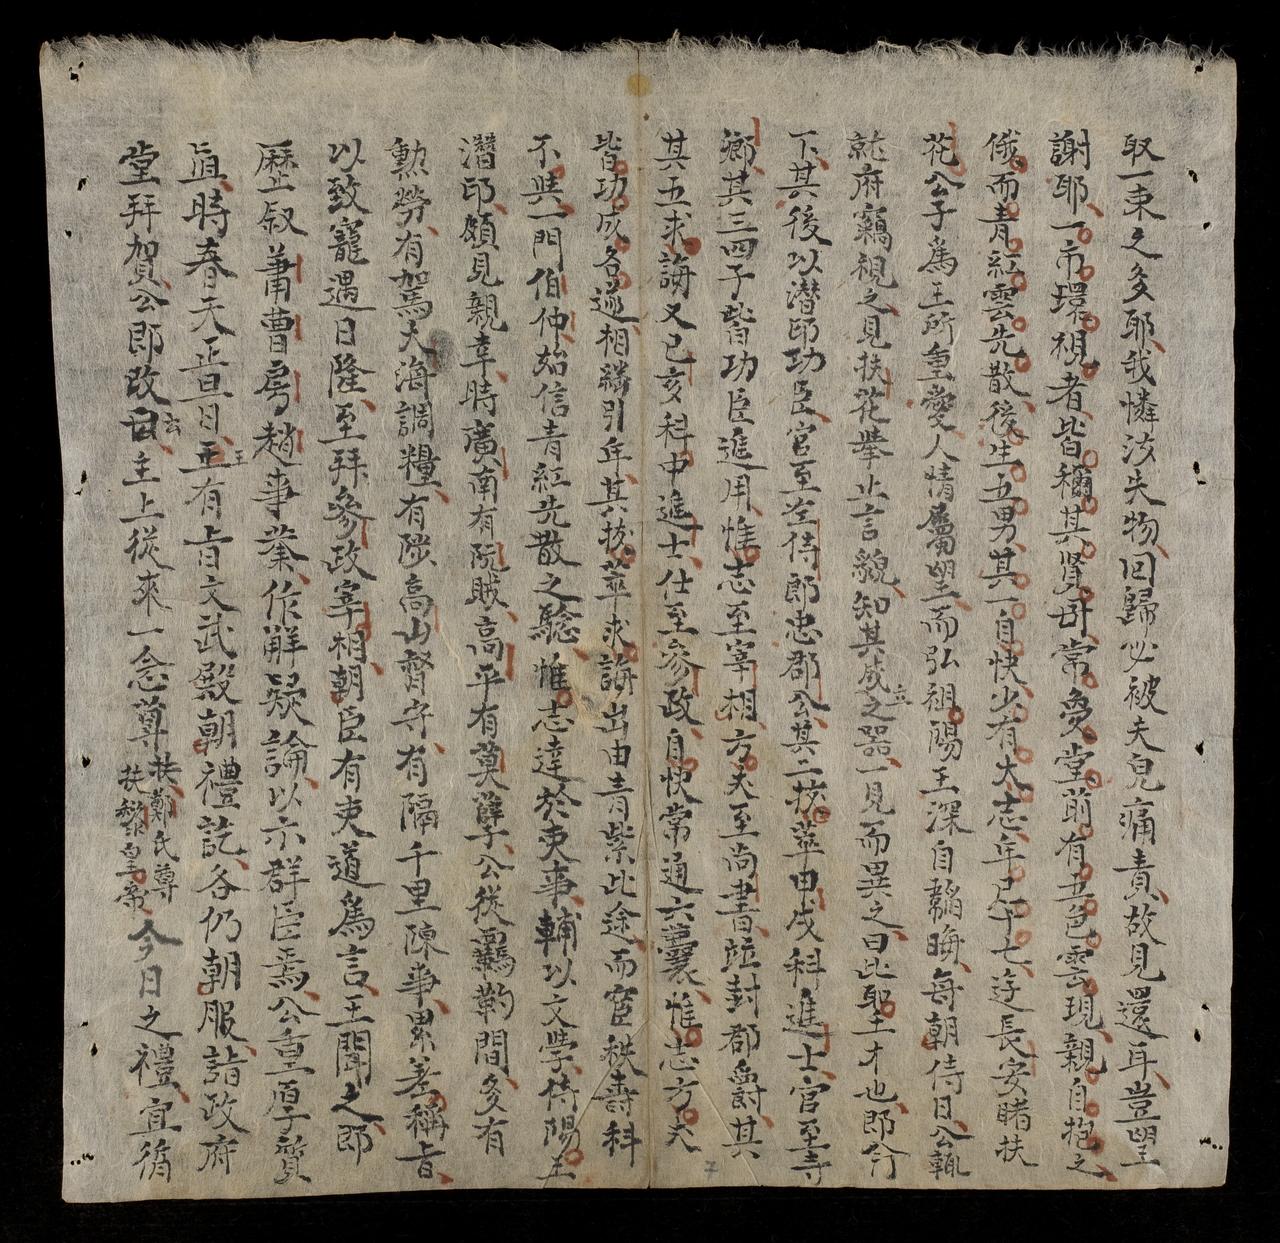 取一束之多耶我憐汝失物回歸必被夫兒痛責故見還耳豈望
謝耶一市環視者皆稱其賢哥常夢堂前有五色雲現親自抱之
俄而青紅雲先散後生五男其一自快少有大志年已十七遊長安睹扶
花公子爲王所重愛人情屬望而弘祖陽王深自韜晦每朝侍日公輒
就府竊視之見扶花舉止言貌知其成立之器一見而異之曰此聖才也即令
下其後以潛邸功臣官至左侍郎忠郡公其二拔萃甲戌科進士官至寺
卿其三四子皆功臣進用惟志至宰相方夫至尚書竝封郡爵其
其五求誨又己亥科中進士仕至參政自快常通六藝惟志方夫
皆功成各遜相繼引年其拔萃求誨出由青紫此途而宦秩壽科
不與一門伯仲始信青紅先散之驗惟志達於吏事輔以文學侍陽王
潛邸頗見親幸時廣南有阮賊高平有莫孽公從羈靮間多有
勲勞有駕大海調糧有陟高山督守有隔千里陳事累差稱旨
以致寵遇日隆至拜參政宰相朝臣有吏道爲言王聞之即
歷叙蕭曹房趙事業作解疑論以示群臣焉公重厚質
直時春天正旦日王王有旨文武殿朝禮訖各仍朝服詣政府
堂拜賀公即改曰云主上從來一念尊扶鄭氏尊扶黎皇帝今日之禮宜循